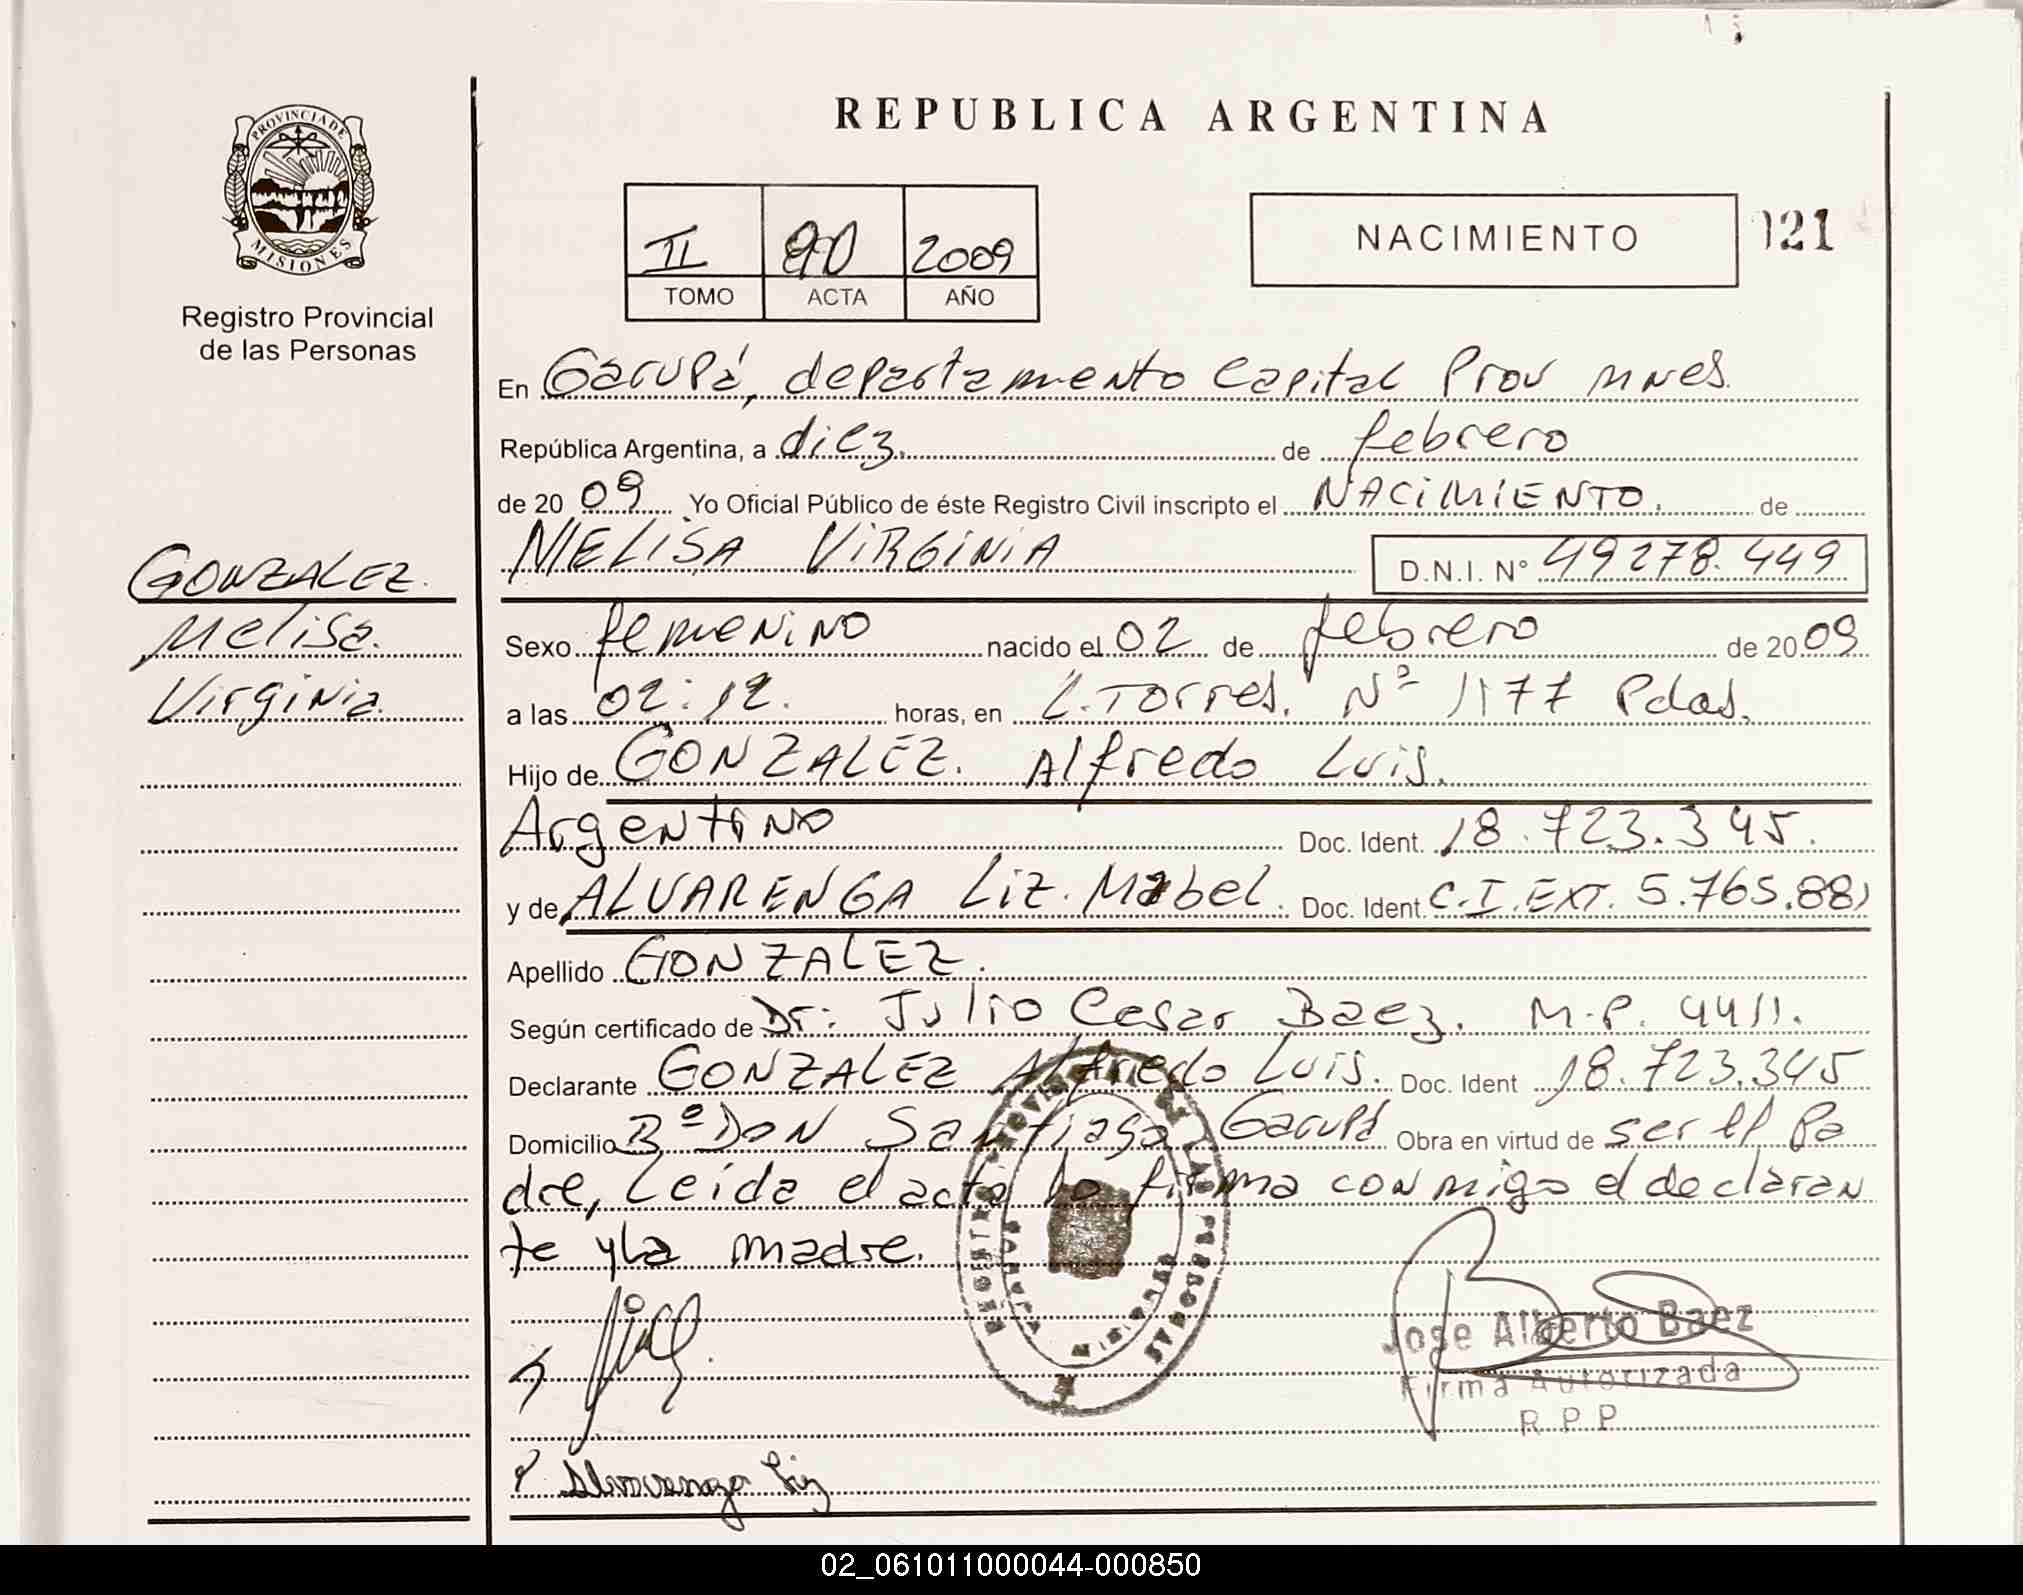 REPUBLICA ARGENTINA
PROVINCIA DE MISIONES
Registro Provincial
de las Personas
II 2009
TOMO ACTA AÑO
NACIMIENTO 121
En Garupá, departamento Capital Prov mnes.
República Argentina, a diez. de febrero
de 20 09 Yo Oficial Público de éste Registro Civil inscripto el NACIMIENTO. de
MELISA VIRGINIA D.N.I. N° 49278.449
GONZALEZ.
Melisa.
Virginia.
Sexo femenino nacido el 02 de febrero de 20 09
a las 02:12. horas, en L. Torres. Nº 1177 Pdas.
Hijo de GONZALEZ. Alfredo Luis.
Argentino Doc. Ident. 18.723.345.
y de ALVARENGA Liz. Mabel. Doc. Ident. C.I.EXT. 5.765.881
Apellido GONZALEZ.
Según certificado de Dr: Julio Cesar Baez. M.P. 4411.
Declarante GONZALEZ Alfredo Luis. Doc. Ident 18.723.345
Domicilio Bº DON Santiago Garupá Obra en virtud de ser el Pa
dre, Leída el acta la firma conmigo el declaran
te y la madre.
Jose Alberto Baez
Firma Autorizada
R.P.P
Alvarenga Liz
02_061011000044-000850